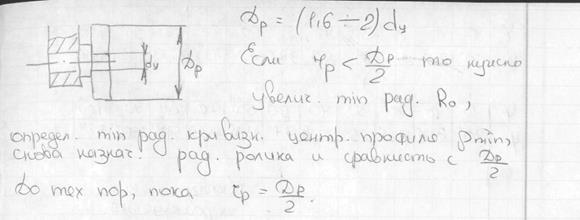 dц Dр
Dр = (1,6 ÷ 2) dц
Если rр < Dр/2 то нужно
увелич. min рад. R₀,
определ. min рад. кривизн. центр. профиля ρmin,
снова назнач. рад. ролика и сравнить с Dр/2
до тех пор, пока rр = Dр/2.